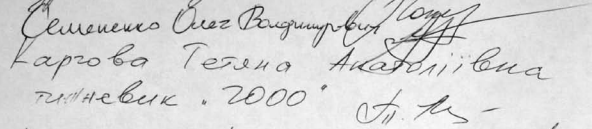 Семененко Олег Володимирович
Каргова Тетяна Анатоліївна
тижневик „2000"